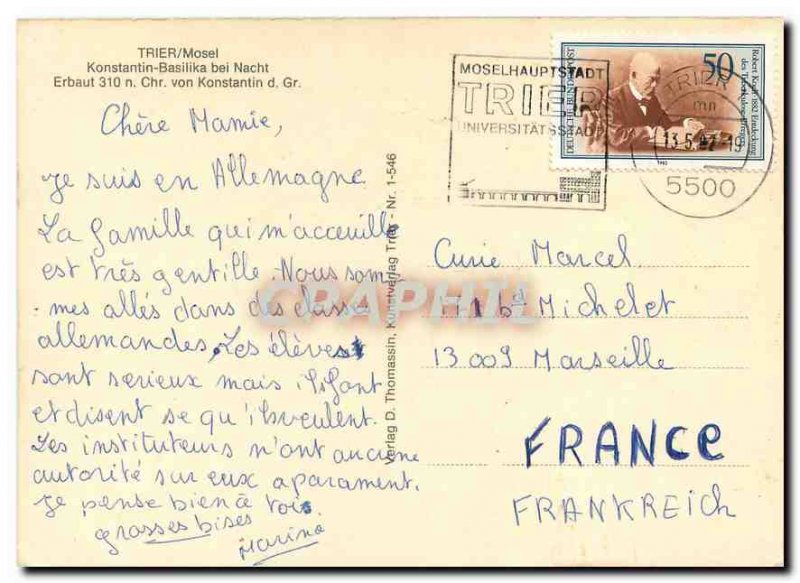 TRIER/Mosel
Konstantin-Basilika bei Nacht
Erbaut 310 n. Chr. von Konstantin d. Gr.
Chère Mamie,
Je suis en Allemagne
La famille qui m'acceuille
est très gentille. Nous som-
mes allés dans des classes
allemandes. Les élèves
sont serieux mais ils font
et disent se qu'ils veulent.
Les instituteurs n'ont aucune
autorité sur eux aparament.
Je pense bien à toi.
grosses bises
Marina
Verlag D. Thomassin, Kunstverlag Trier - Nr. 1-546
MOSELHAUPTSTADT
TRIER
UNIVERSITÄTSSTADT
DEUTSCHE BUNDESPOST
50
Robert Koch 1882 Entdeckung
des Tuberkulose-Erregers
1982
TRIER
mn
13.5.87-19
5500
Curie Marcel
Bd Michelet
13009 Marseille
FRANCE
FRANKREICH
CPAPHIL